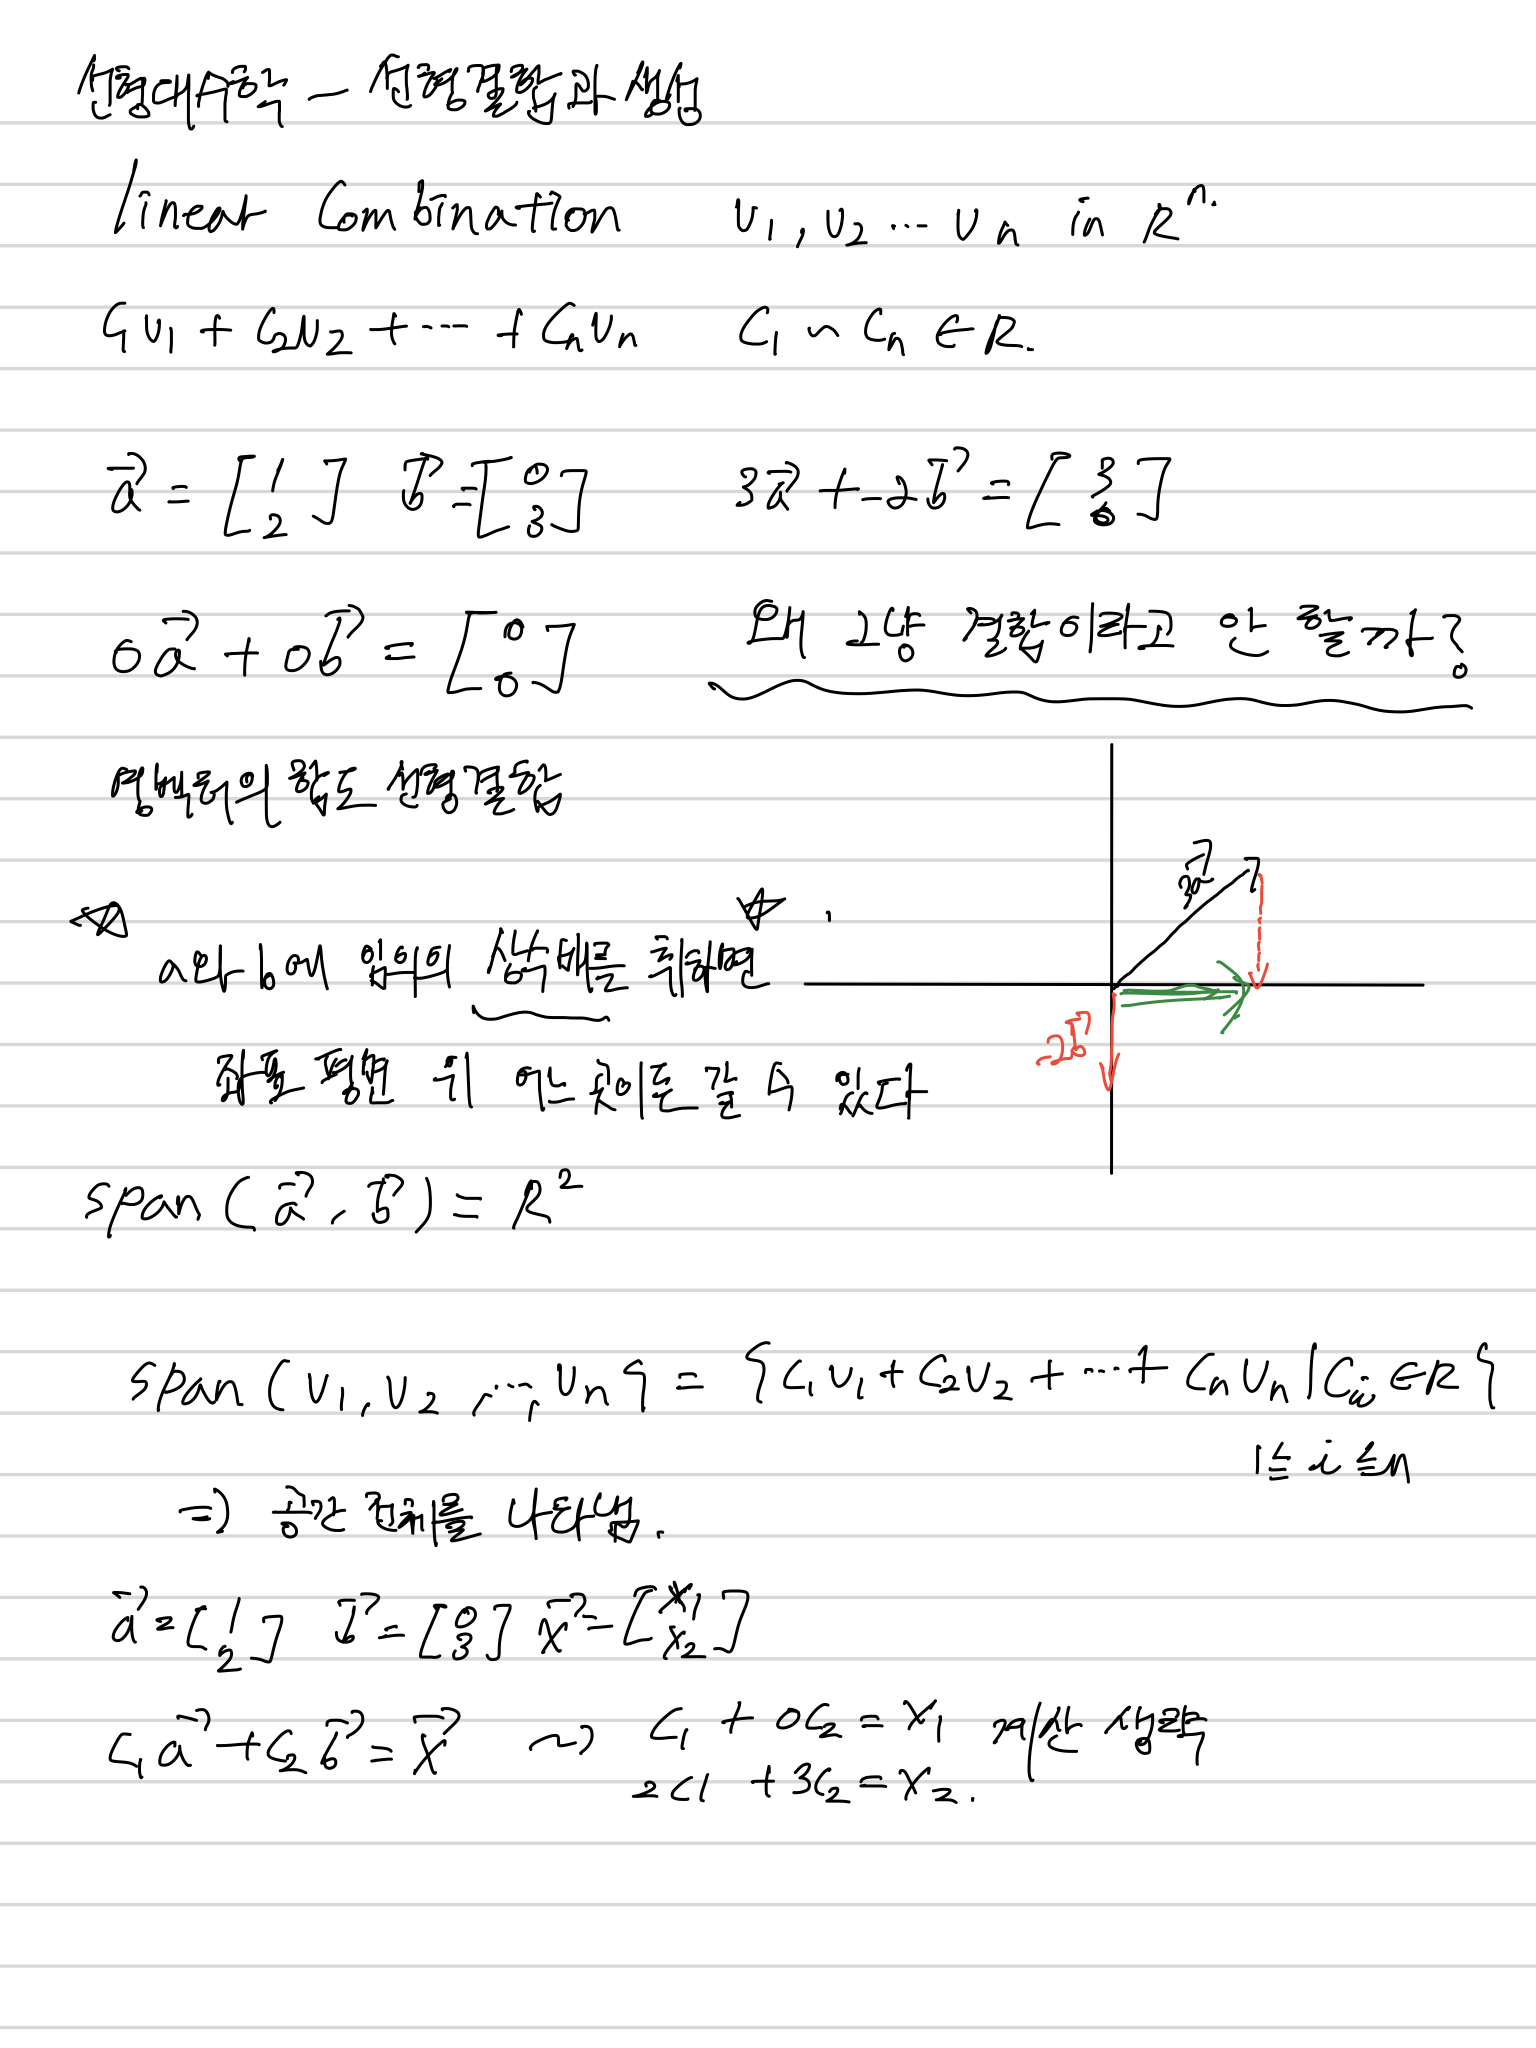 선형대수학 - 선형결합과 생성
linear Combination v₁, v₂ ... vₙ in Rⁿ.
C₁v₁ + C₂v₂ + ... + Cₙvₙ C₁ ~ Cₙ ∈ R.
a⃗ = [1 2] b⃗ = [0 3] 3a⃗ + -2b⃗ = [3 0]
0a⃗ + 0b⃗ = [0 0] 왜 그냥 결합이라고 안 할까?
영벡터의 합도 선형결합
3a⃗
a와 b에 임의의 상수배를 취하면
-2b⃗
좌표 평면 위 어느 곳이든 갈 수 있다
span(a⃗, b⃗) = R²
span(v₁, v₂, ..., vₙ} = {C₁v₁ + C₂v₂ + ... + Cₙvₙ | Cᵢ ∈ R}
1 ≦ i ≦ n
⇒ 공간 전체를 나타냄.
a⃗ = [1 2] b⃗ = [0 3] x⃗ = [x₁ x₂]
C₁a⃗ + C₂b⃗ = x⃗ ~> C₁ + 0C₂ = x₁ 계산 생략
2C1 + 3C₂ = x₂.